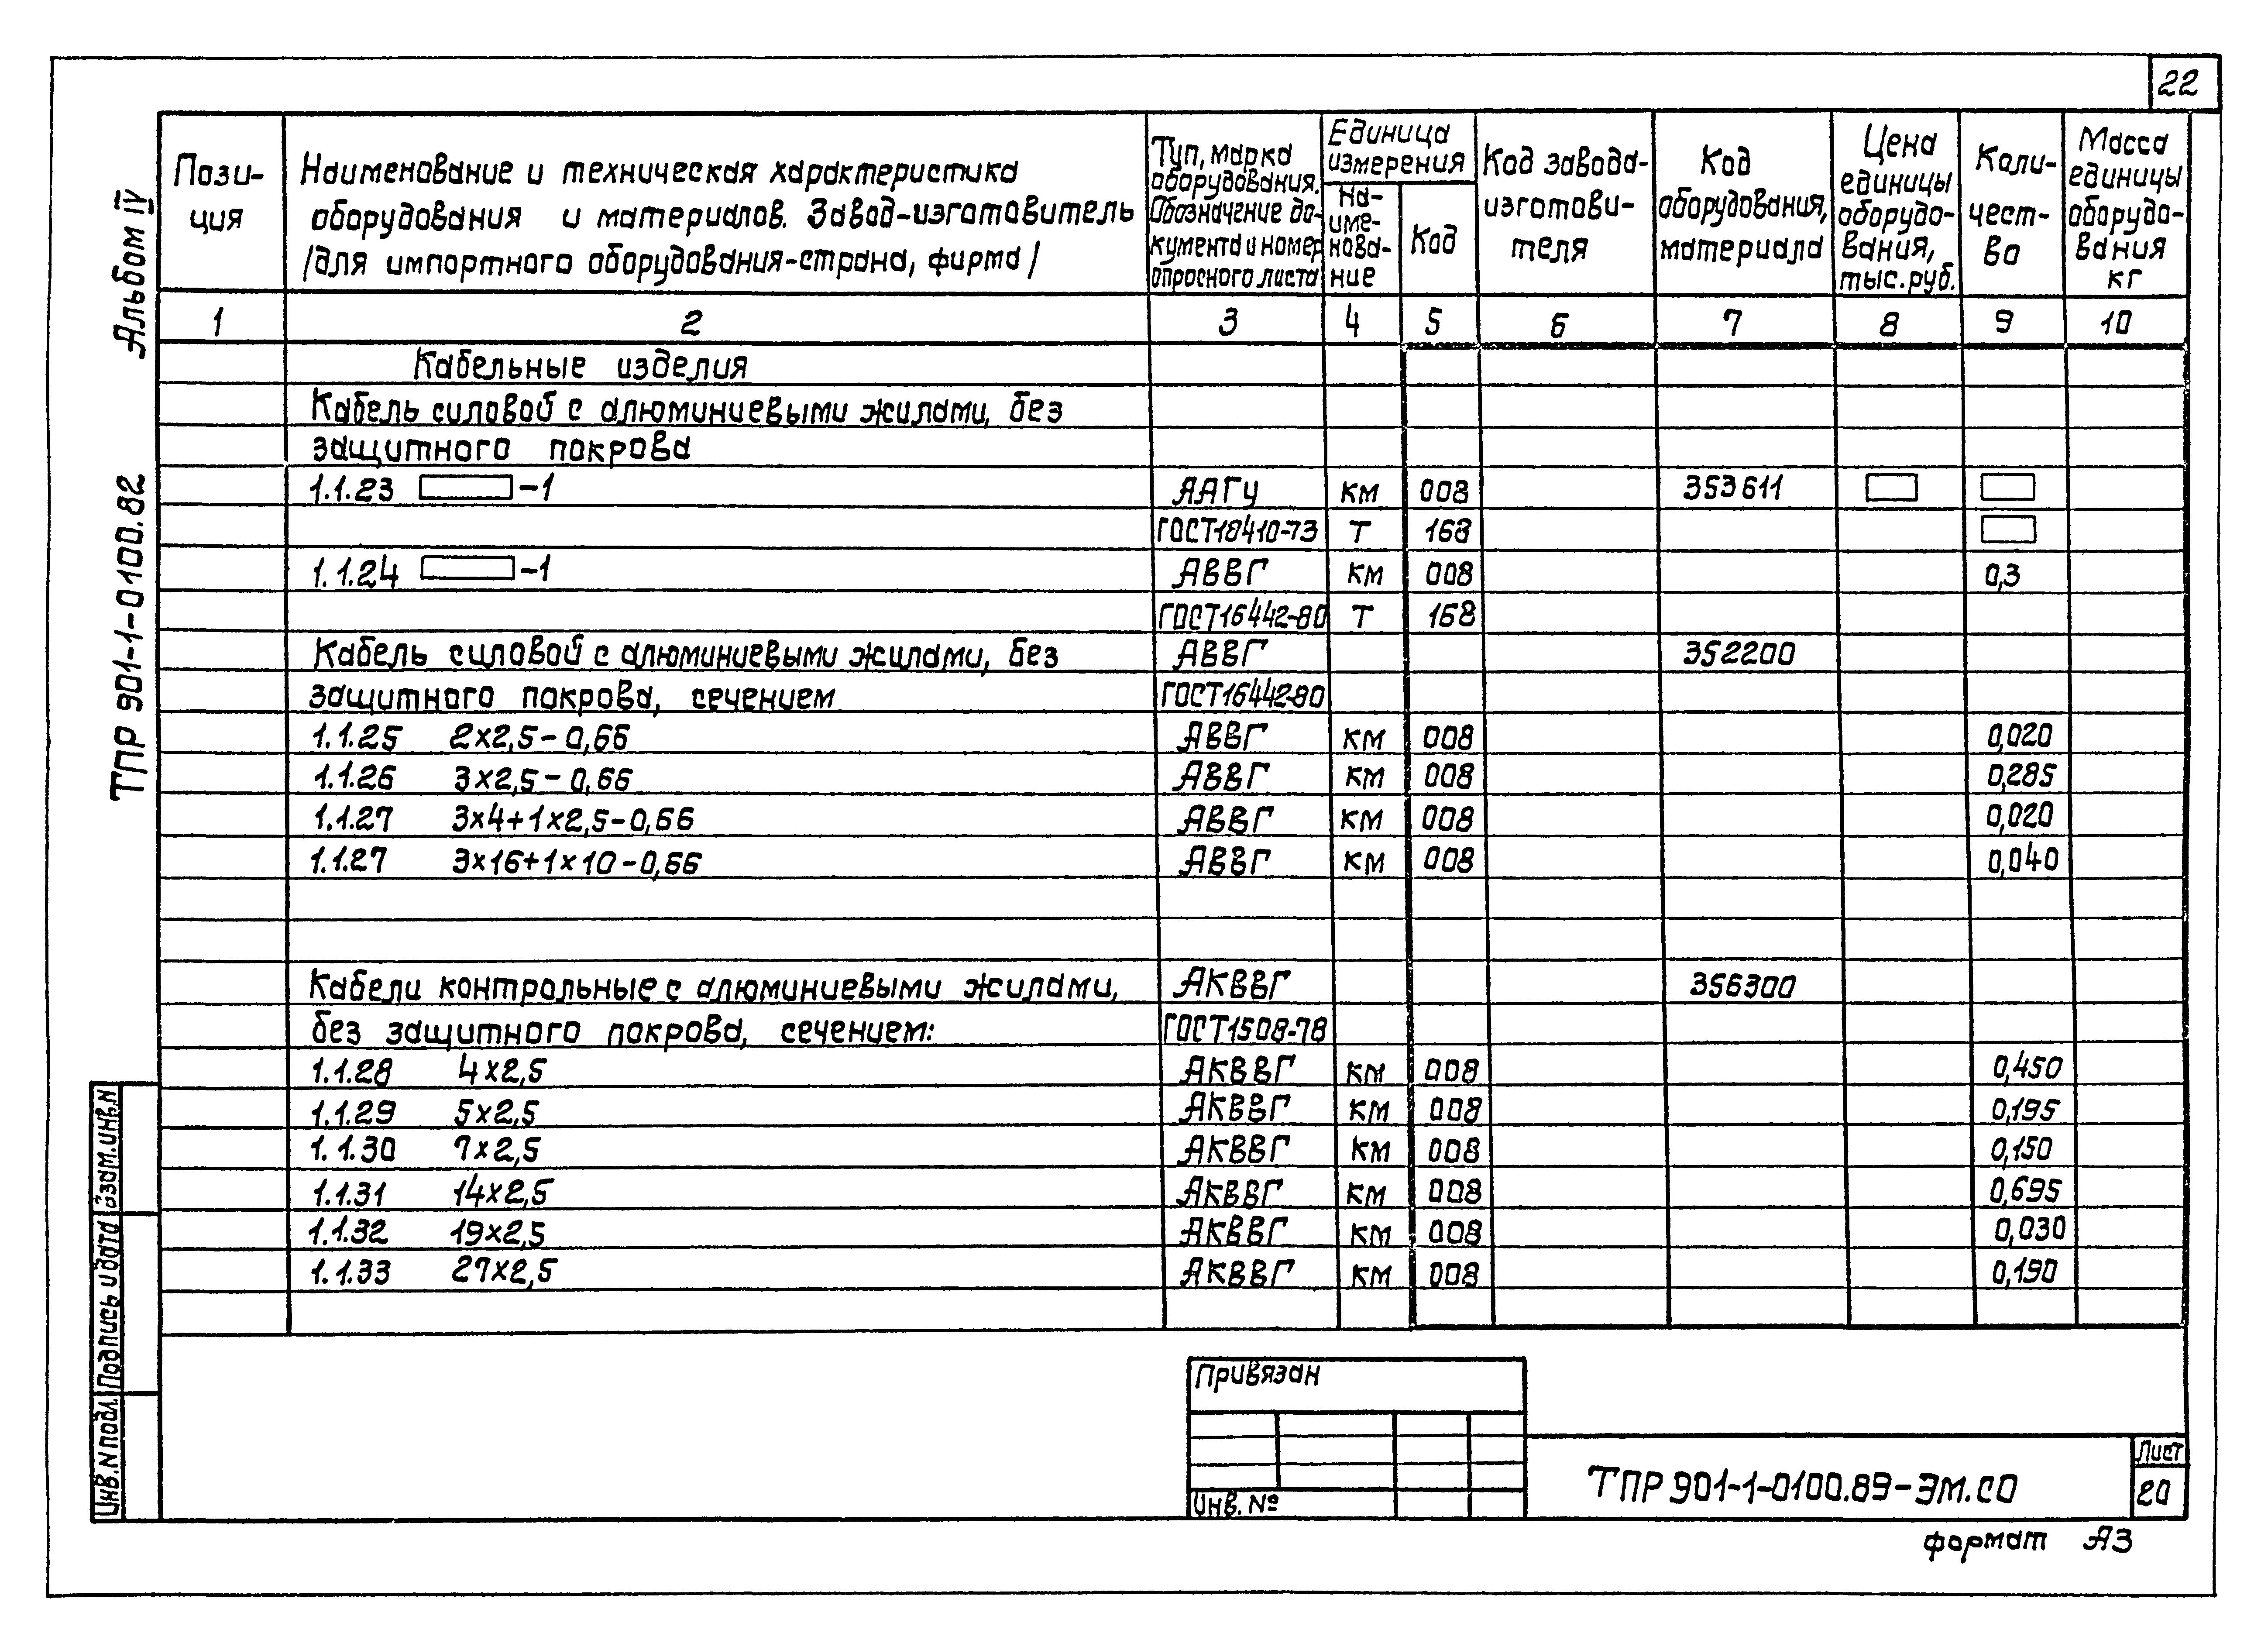 22
Альбом IV
ТПР 901-1-0100.82
Пози-
ция
Наименование и техническая характеристика
оборудования и материалов. Завод-изготовитель
/для импортного оборудования-страна, фирма/
Тип, марка
оборудования.
Обозначение до-
кумента и номер
опросного листа
Единица
измерения
На-
име-
нова-
ние
Код
Код завода-
изготови-
теля
Код
оборудования,
материала
Цена
единицы
оборудо-
вания,
тыс. руб.
Коли-
чест-
во
Масса
единицы
оборудо-
вания
кг
1 2 3 4 5 6 7 8 9 10
Кабельные изделия
Кабель силовой с алюминиевыми жилами, без
защитного покрова
1.1.23 -1 ААГУ км 008 353611
ГОСТ18410-73 т 168
1.1.24 -1 АВВГ км 008 0,3
ГОСТ16442-80 т 168
Кабель силовой с алюминиевыми жилами, без АВВГ 352200
защитного покрова, сечением ГОСТ16442-80
1.1.25 2х2,5-0,66 АВВГ км 008 0,020
1.1.26 3х2,5-0,66 АВВГ км 008 0,285
1.1.27 3х4+1х2,5-0,66 АВВГ км 008 0,020
1.1.27 3х16+1х10-0,66 АВВГ км 008 0,040
Кабели контрольные с алюминиевыми жилами, АКВВГ 356300
без защитного покрова, сечением: ГОСТ1508-78
1.1.28 4х2,5 АКВВГ км 008 0,450
1.1.29 5х2,5 АКВВГ км 008 0,195
1.1.30 7х2,5 АКВВГ км 008 0,150
1.1.31 14х2,5 АКВВГ км 008 0,695
1.1.32 19х2,5 АКВВГ км 008 0,030
1.1.33 27х2,5 АКВВГ км 008 0,190
Взам.инв.N
Подпись и дата
Инв.N подл.
Привязан
Инв. №
ТПР 901-1-0100.89-ЭМ.СО
Лист
20
формат А3